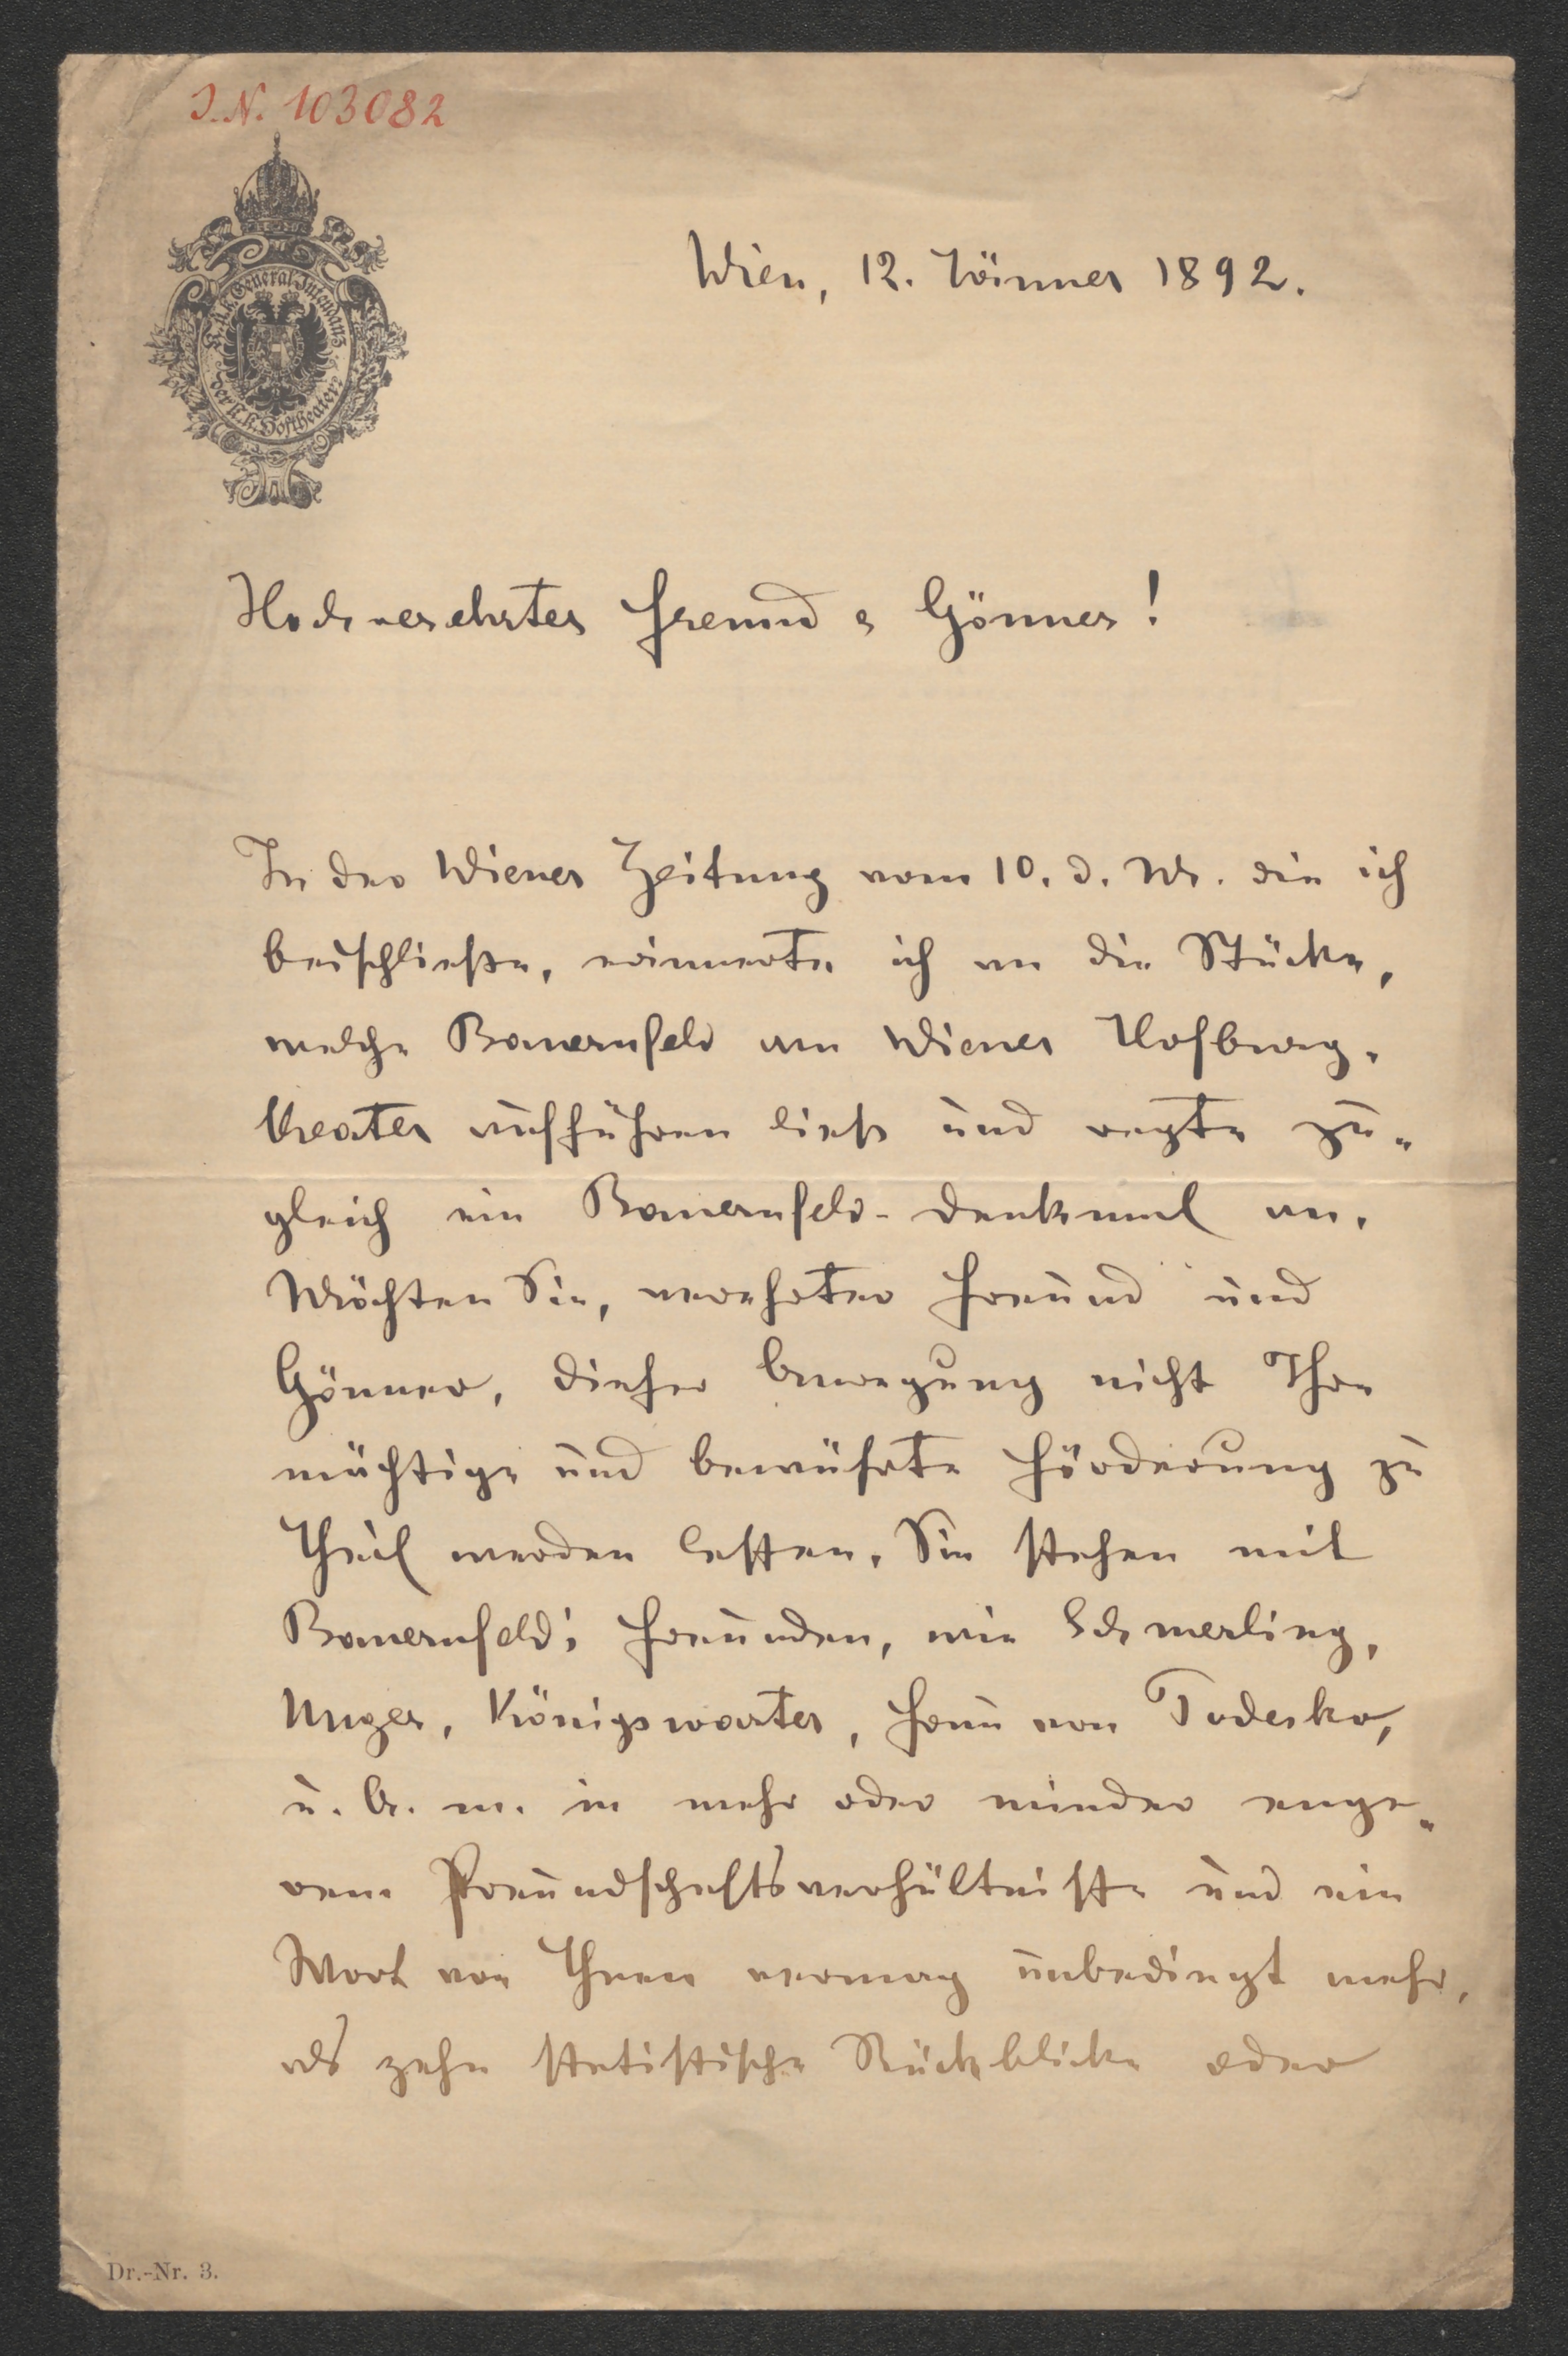 I.N. 103082
K. u. k. General-Intendanz
der k. k. Hoftheater.
Wien, 12. Jänner 1892.
Hochverehrter Freund & Gönner!
In der Wiener Zeitung vom 10. d. M. die ich
beischließe, erinnerte ich an die Stücke,
welche Bauernfeld am Wiener Hofburg-
theater aufführen ließ und regte zu-
gleich ein Bauernfeld-Denkmal an.
Möchten Sie, verehrter Freund und
Gönner, dieser Bewegung nicht Ihre
mächtige und bewährte Förderung zu
Theil werden lassen. Sie stehen mit
Bauernfeld's Freunden, wie Schmerling,
Unger, Königswarter, Frau von Todesko,
u. A. m. in mehr oder minder enge-
rem Freundschaftsverhältnisse und ein
Wort von Ihnen vermag unbedingt mehr,
als zehn statistische Rückblicke oder
Dr.-Nr. 3.